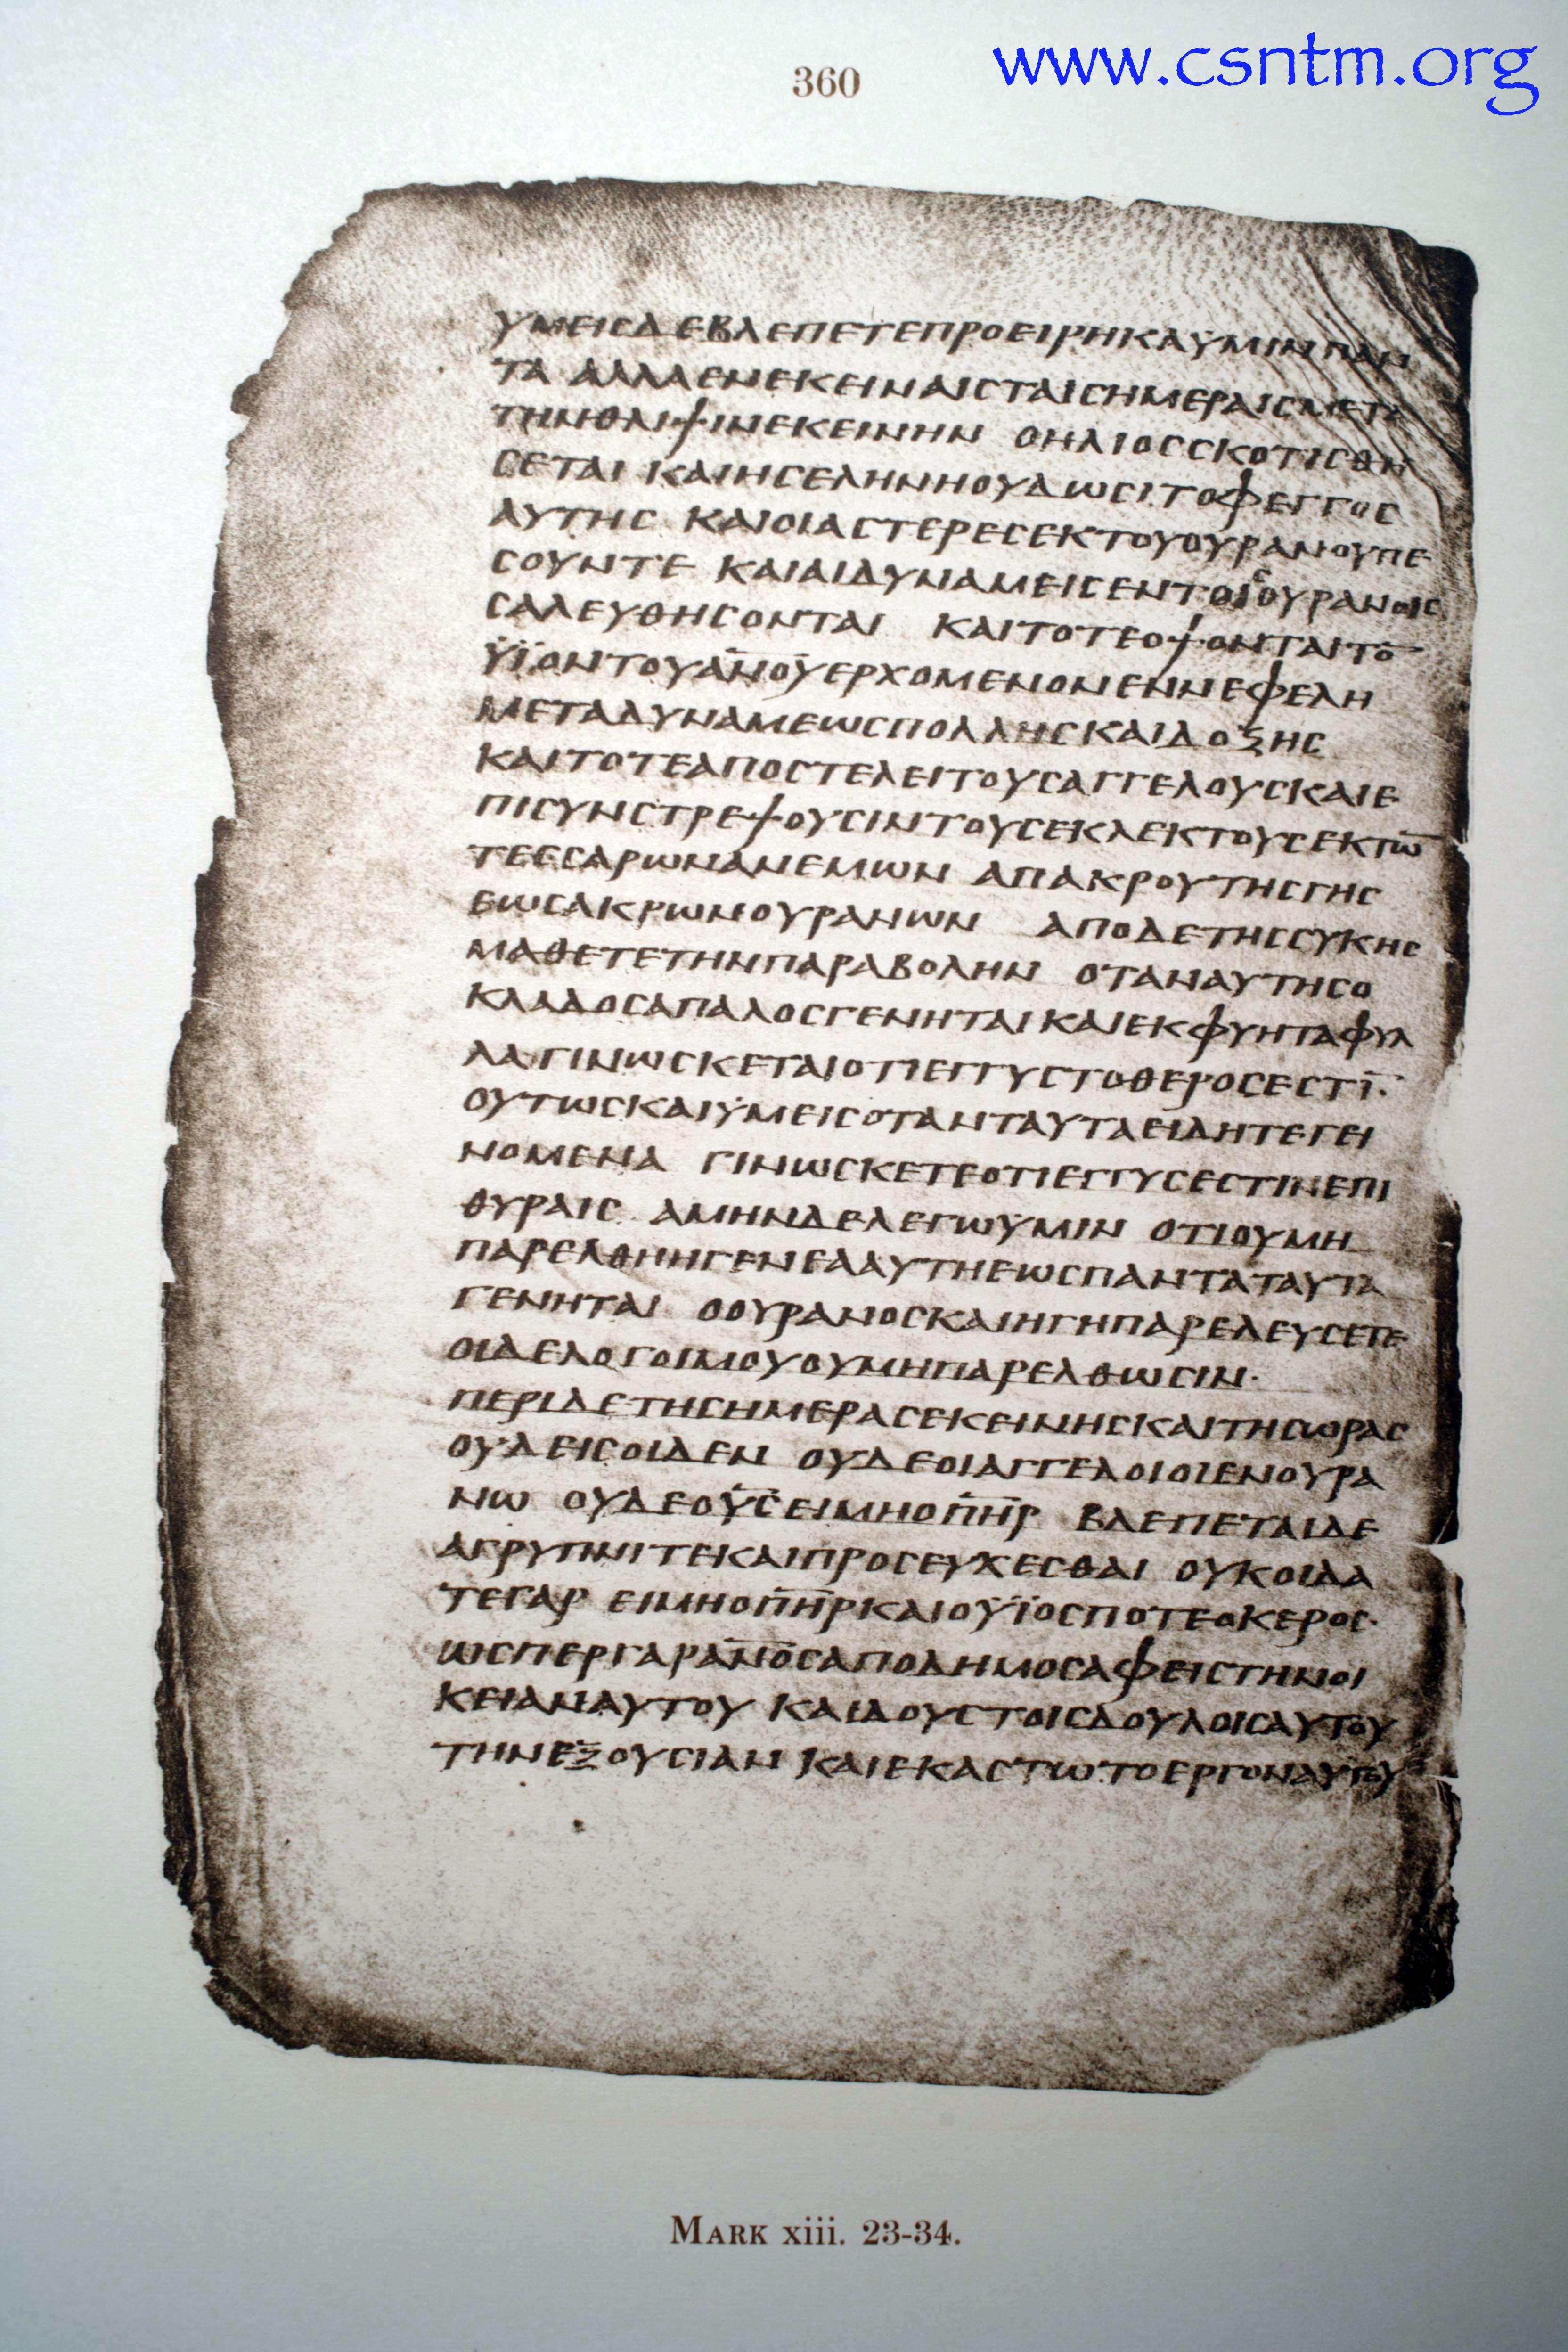 360
www.csntm.org
ΥΜΕΙСΔΕΒΛΕΠΕΤΕΠΡΟΕΙΡΗΚΑΫΜΙΝΠΑΝ
ΤΑ ΑΛΛΑΕΝΕΚΕΙΝΑΙСΤΑΙСΗΜΕΡΑΙСΜΕΤΑ
ΤΗΝΘΛΙΨΙΝΕΚΕΙΝΗΝ ΟΗΛΙΟССΚΟΤΙСΘΗ
СΕΤΑΙ ΚΑΙΗСΕΛΗΝΗΟΥΔΩСΙΤΟΦΕΓΓΟС
ΑΥΤΗС ΚΑΙΟΙΑСΤΕΡΕСΕΚΤΟΥΟΥΡΑΝΟΥΠΕ
СΟΥΝΤΕ ΚΑΙΑΙΔΥΝΑΜΕΙСΕΝΤΟΙСΟΥΡΑΝΟΙС
СΑΛΕΥΘΗСΟΝΤΑΙ ΚΑΙΤΟΤΕΟΨΟΝΤΑΙΤΟ̅
ΫΪΟΝΤΟΥΑ̅Ν̅Ο̅Υ̅ΕΡΧΟΜΕΝΟΝΕΝΝΕΦΕΛΗ
ΜΕΤΑΔΥΝΑΜΕΩСΠΟΛΛΗСΚΑΙΔΟΞΗС
ΚΑΙΤΟΤΕΑΠΟСΤΕΛΕΙΤΟΥСΑΓΓΕΛΟΥСΚΑΙΕ
ΠΙСΥΝСΤΡΕΨΟΥСΙΝΤΟΥСΕΚΛΕΚΤΟΥСΕΚΤΩ̅
ΤΕССΑΡΩΝΑΝΕΜΩΝ ΑΠΑΚΡΟΥΤΗСΓΗС
ΕΩСΑΚΡΩΝΟΥΡΑΝΩΝ ΑΠΟΔΕΤΗССΥΚΗС
ΜΑΘΕΤΕΤΗΝΠΑΡΑΒΟΛΗΝ ΟΤΑΝΑΥΤΗСΟ
ΚΛΑΔΟСΑΠΑΛΟСΓΕΝΗΤΑΙΚΑΙΕΚΦΥΗΤΑΦΥΛ
ΛΑΓΙΝΩСΚΕΤΑΙΟΤΙΕΓΓΥСΤΟΘΕΡΟСΕСΤΙ̅·
ΟΥΤΩСΚΑΙΫΜΕΙСΟΤΑΝΤΑΥΤΑΕΙΔΗΤΕΓΕΙ
ΝΟΜΕΝΑ ΓΙΝΩСΚΕΤΕΟΤΙΕΓΓΥСΕСΤΙΝΕΠΙ
ΘΥΡΑΙС ΑΜΗΝΔΕΛΕΓΩΫΜΙΝ ΟΤΙΟΥΜΗ
ΠΑΡΕΛΘΗΗΓΕΝΕΑΑΥΤΗΕΩСΠΑΝΤΑΤΑΥΤΑ
ΓΕΝΗΤΑΙ ΟΟΥΡΑΝΟСΚΑΙΗΓΗΠΑΡΕΛΕΥСΕΤΕ
ΟΙΔΕΛΟΓΟΙΜΟΥΟΥΜΗΠΑΡΕΛΘΩСΙΝ·
ΠΕΡΙΔΕΤΗСΗΜΕΡΑСΕΚΕΙΝΗСΚΑΙΤΗСΩΡΑС
ΟΥΔΕΙСΟΙΔΕΝ ΟΥΔΕΟΙΑΓΓΕΛΟΙΟΙΕΝΟΥΡΑ
ΝΩ ΟΥΔΕΟΥ̅С̅ΕΙΜΗΟΠ̅Η̅Ρ̅ ΒΛΕΠΕΤΑΙΔΕ
ΑΓΡΥΠΝΙΤΕΚΑΙΠΡΟСΕΥΧΕСΘΑΙ ΟΥΚΟΙΔΑ
ΤΕΓΑΡ ΕΙΜΗΟΠ̅Η̅Ρ̅ΚΑΙΟΫΪΟСΠΟΤΕΟΚΕΡΟС·
ΩСΠΕΡΓΑΡΑ̅Ν̅Ο̅С̅ΑΠΟΔΗΜΟСΑΦΕΙСΤΗΝΟΙ
ΚΕΙΑΝΑΥΤΟΥ ΚΑΙΔΟΥСΤΟΙСΔΟΥΛΟΙСΑΥΤΟΥ
ΤΗΝΕΞΟΥСΙΑΝ ΚΑΙΕΚΑСΤΩΤΟΕΡΓΟΝΑΥΤΟΥ
MARK xiii. 23-34.